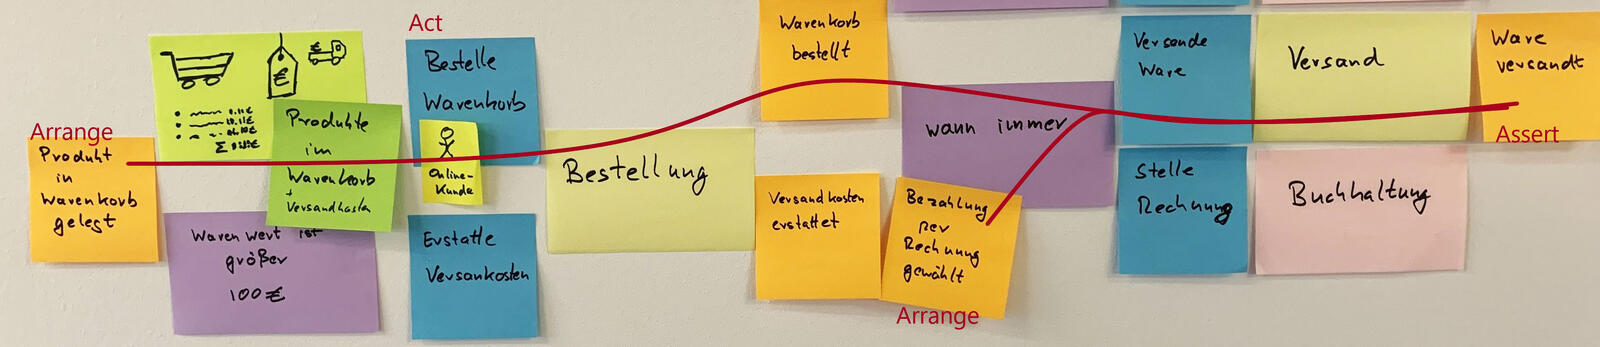 Arrange
Produkt
in
Warenkorb
gelegt
€
€
Σ
Produkte
im
Warenkorb
+
Versandkosten
Warenwert ist
größer
100 €
Act
Bestelle
Warenkorb
Online-
Kunde
Erstatte
Versankosten
Bestellung
Warenkorb
bestellt
Versandkosten
erstattet
Bezahlung
per
Rechnung
gewählt
Arrange
wann immer
Versende
Ware
Stelle
Rechnung
Versand
Buchhaltung
Ware
versandt
Assert